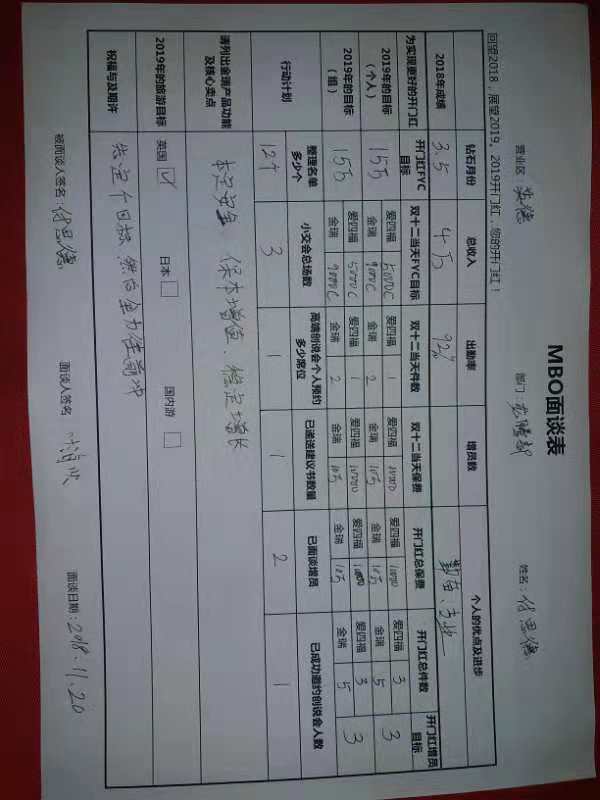 MBO面谈表
营业区：英德 部门：龙腾部 姓名：付思德
回望2018，展望2019，2019开门红，您的开门红！
2018年成绩 钻石月份 总收入 出勤率 增员数 个人的优点及进步
3.5 4万 92% 勤奋、专业
为实现更好的开门红 开门红FYC目标 双十二当天FYC目标 双十二当天件数 双十二当天保费 开门红总保费 开门红总件数 开门红增员目标
2019年的目标（个人） 15万 爱四福 5000C 爱四福 1 爱四福 10000 爱四福 11000 爱四福 3 3
金瑞 9000C 金瑞 2 金瑞 10万 金瑞 10万 金瑞 5
2019年的目标（组） 15万 爱四福 5000C 爱四福 1 爱四福 10000 爱四福 11000 爱四福 3 3
金瑞 9000C 金瑞 2 金瑞 10万 金瑞 10万 金瑞 5
行动计划 整理名单多少个 小交会总场数 高端创说会个人预约多少席位 已递送建议书数量 已面谈增员 已成功邀约创说会人数
12个 3 1 1 2 1
请列出金瑞产品功能及核心卖点 本金安全 保本增值、稳定增长
2019年的旅游目标 英国 ☑ 日本 □ 国内游 □
祝福与及期许 先定个目标 然后全力往前冲
被面谈人签名：付思德 面谈人签名 面谈日期：2018.11.20